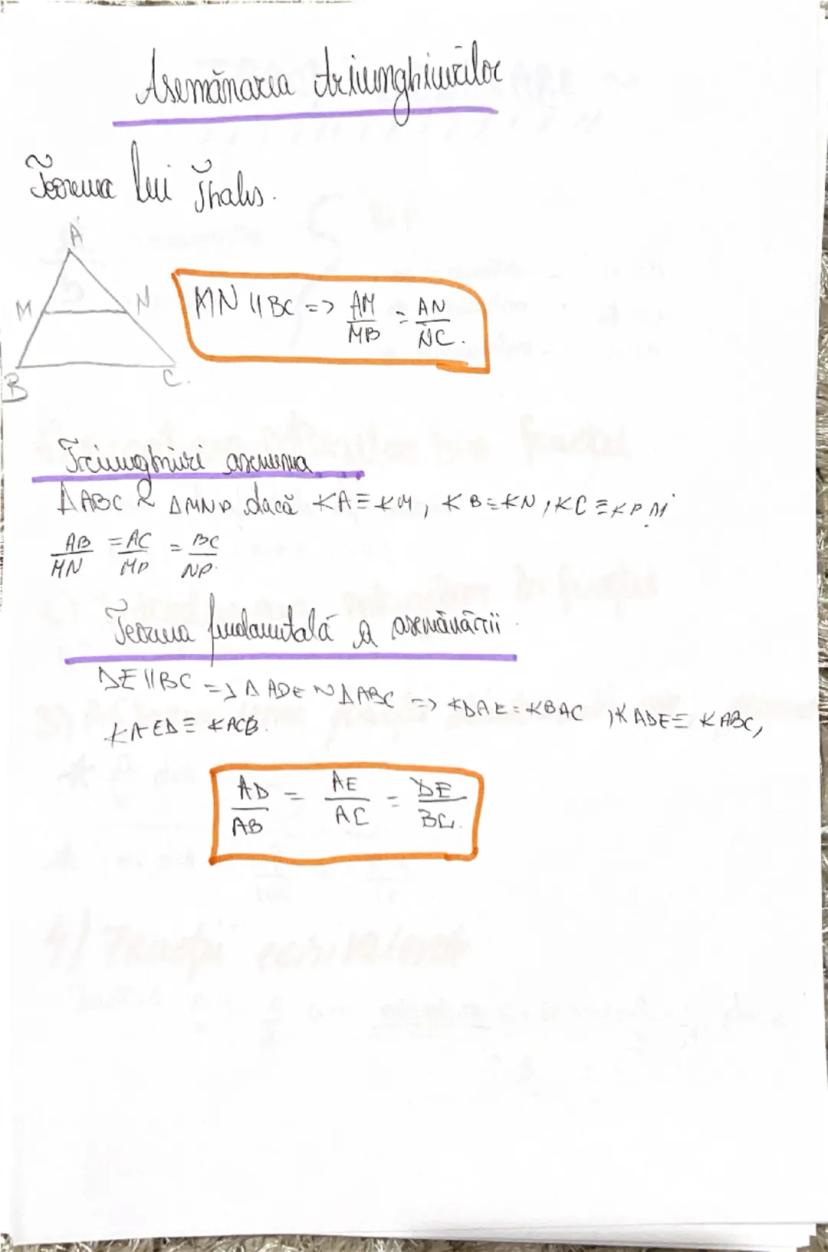 Asemănarea triunghiurilor
Teorema lui Thales.
A
M
N
B
C.
MN || BC => AM/MB = AN/NC.
Triunghiuri asemenea
ΔABC ~ ΔMNP dacă ∢A ≡ ∢M, ∢B ≡ ∢N, ∢C ≡ ∢P și
AB/MN = AC/MP = BC/NP.
Teorema fundamentală a asemănării
DE || BC => ΔADE ~ ΔABC => ∢DAE = ∢BAC, ∢ADE ≡ ∢ABC,
∢AED ≡ ∢ACB.
AD/AB = AE/AC = DE/BC.
4) Fracții echivalente